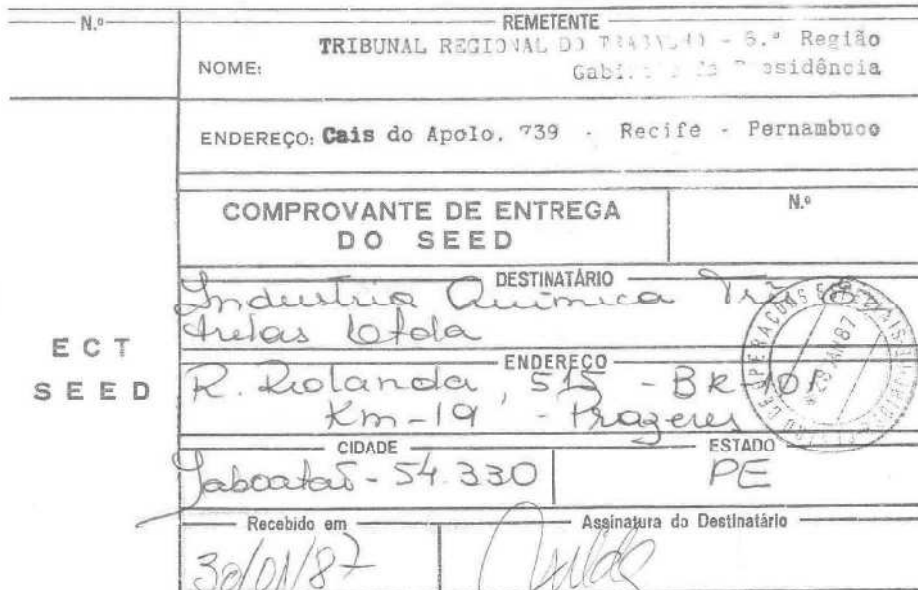 N.º
REMETENTE
TRIBUNAL REGIONAL DO TRABALHO - 6.ª Região
NOME:
Gabinete da Presidência
ENDEREÇO: Cais do Apolo, 739 - Recife - Pernambuco
COMPROVANTE DE ENTREGA
DO SEED
N.º
DESTINATÁRIO
Industria Química Três
Ltda
ECT
SEED
ENDEREÇO
R. Rolanda, 515 - BR-101
Km-19 - Prazeres
CIDADE
Jaboatão - 54.330
ESTADO
PE
Recebido em
30/01/87
Assinatura do Destinatário